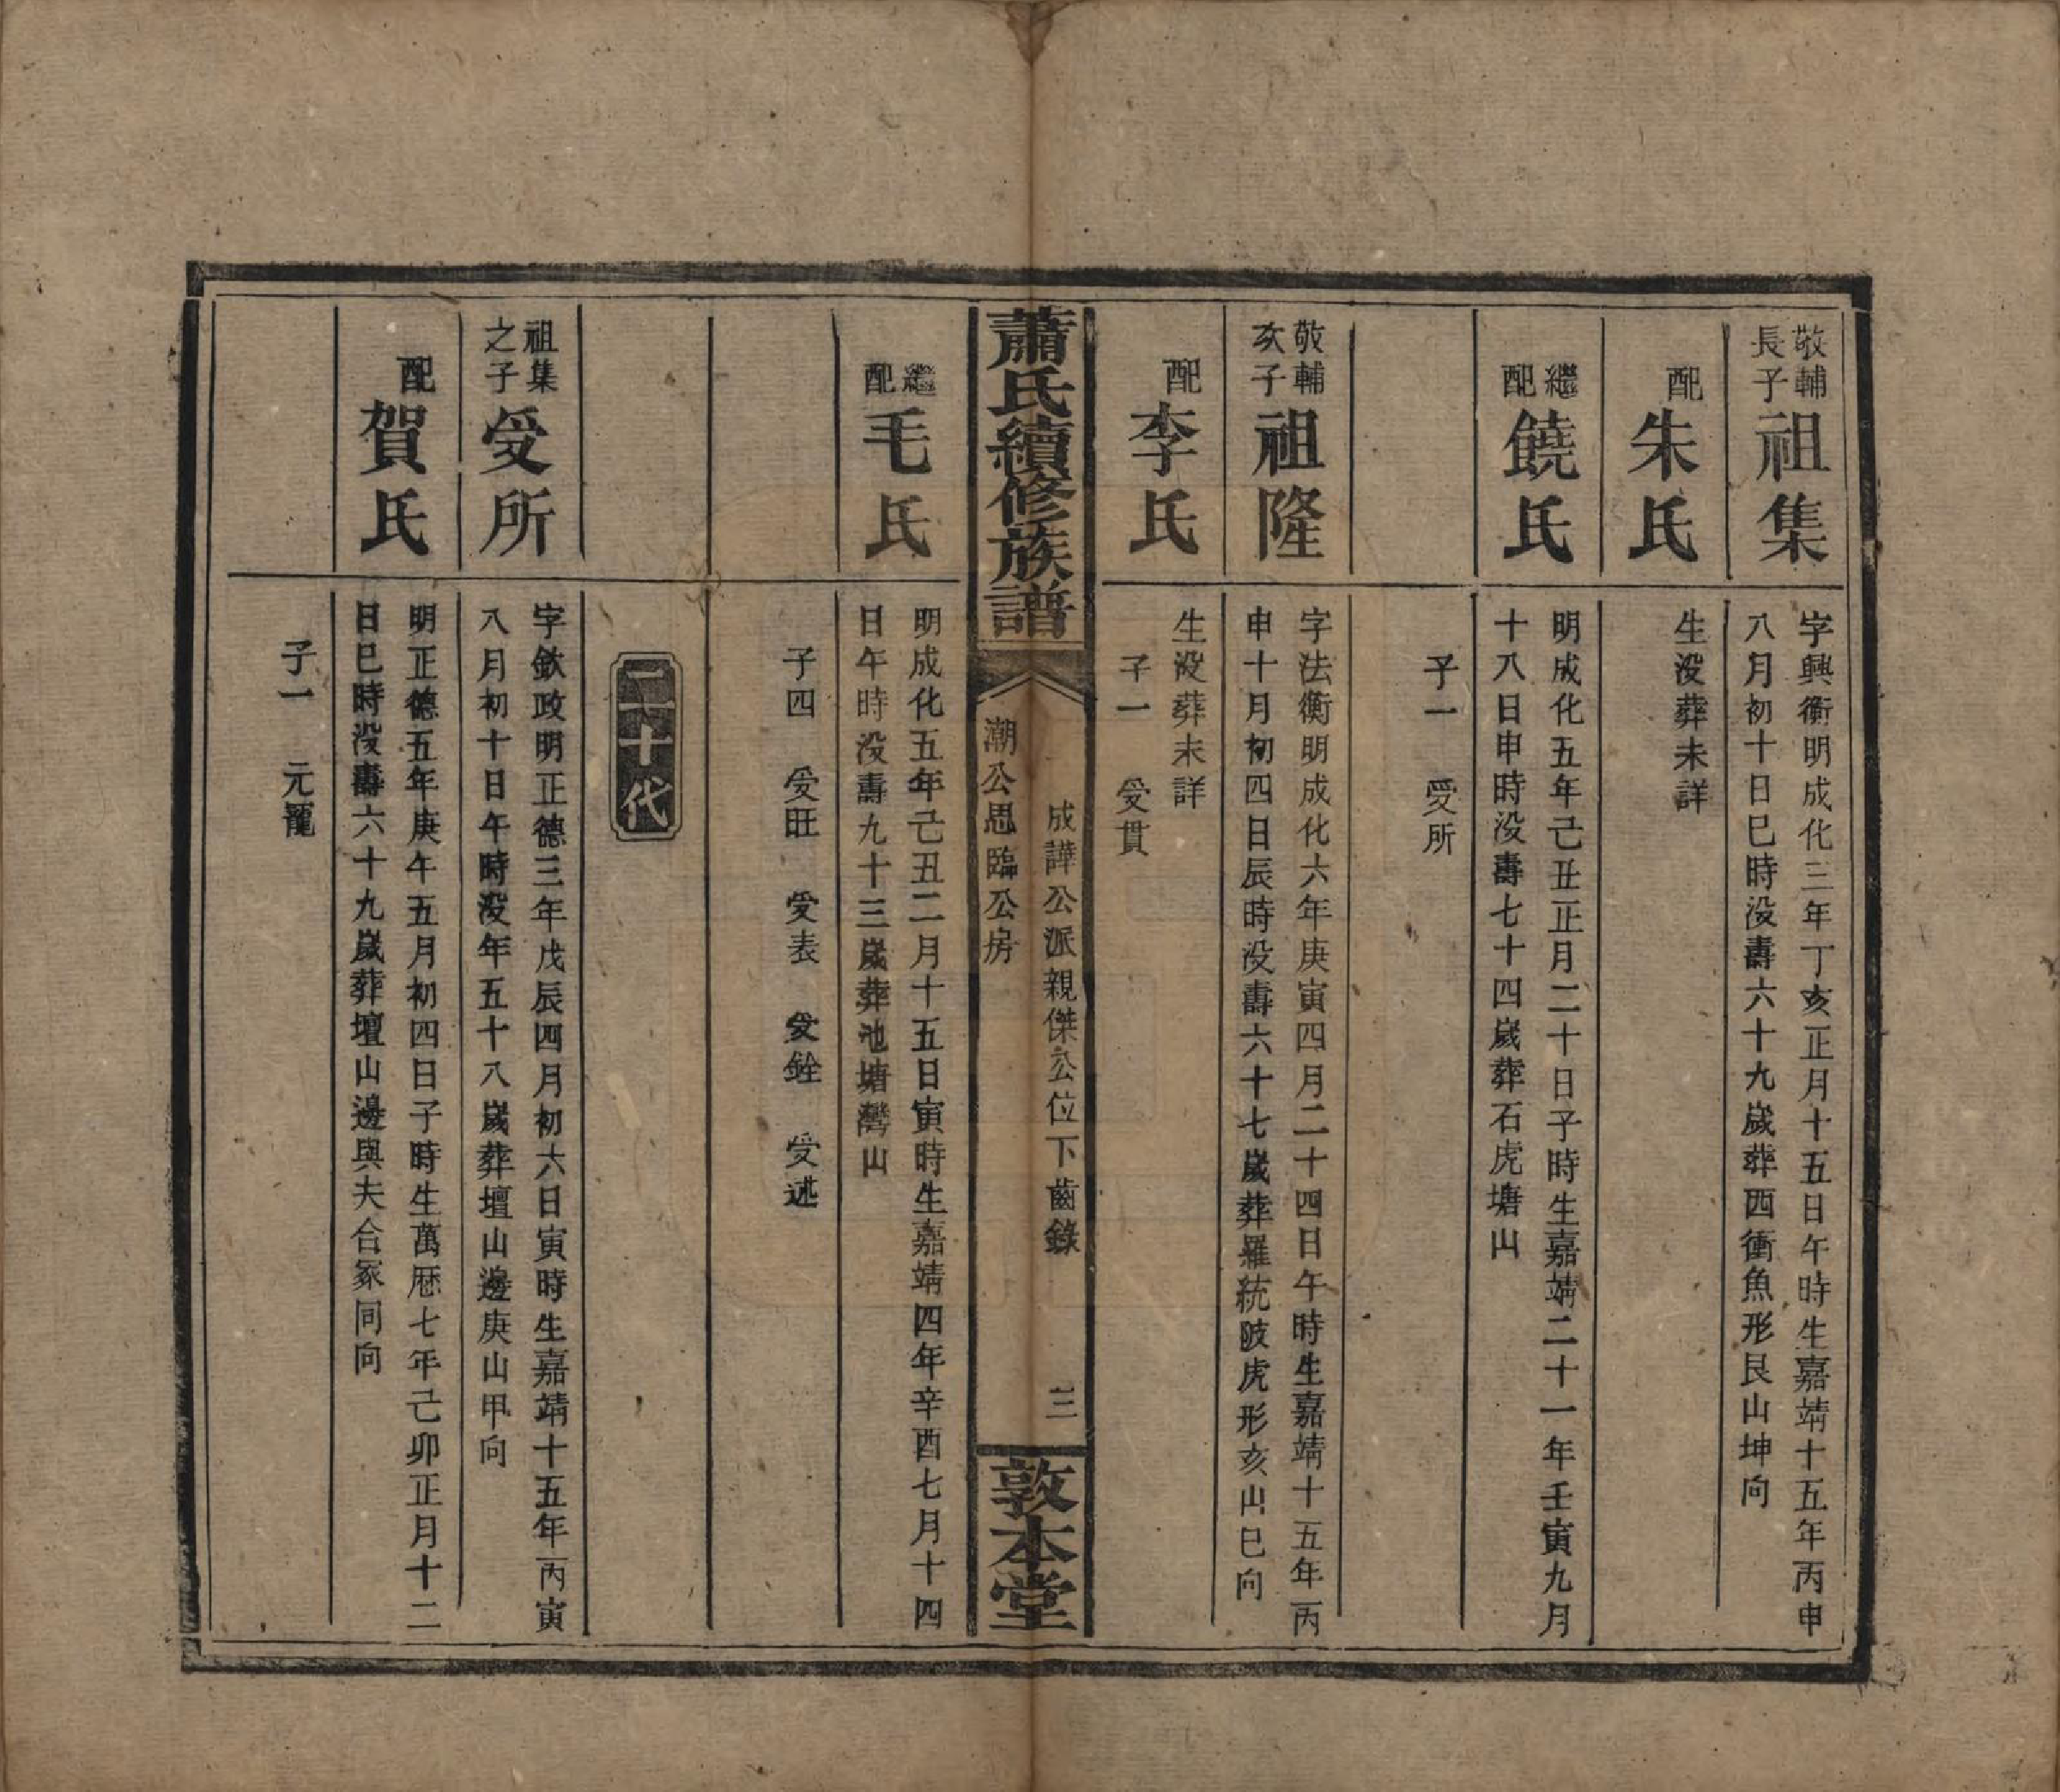 敬輔
長子
祖集
字興衡明成化三年丁亥正月十五日午時生嘉靖十五年丙申
八月初十日巳時没壽六十九歲葬西衝魚形艮山坤向
配
朱氏
生没葬未詳
繼
配
饒氏
明成化五年己丑正月二十日子時生嘉靖二十一年壬寅九月
十八日申時没壽七十四歲葬石虎塘山
子一　受所
敬輔
次子
祖隆
字法衡明成化六年庚寅四月二十四日午時生嘉靖十五年丙
申十月初四日辰時没壽六十七歲葬羅統陂虎形亥山巳向
配
李氏
生没葬未詳
子一　受貫
蕭氏續修族譜
成譁公派親傑公位下齒錄　三
潮公思臨公房
敦本堂
繼
配
毛氏
明成化五年己丑二月十五日寅時生嘉靖四年辛酉七月十四
日午時没壽九十三歲葬池塘灣山
子四　受旺　受表　受銓　受述
二十代
祖集
之子
受所
字欽政明正德三年戊辰四月初六日寅時生嘉靖十五年丙寅
八月初十日午時没年五十八歲葬壇山邊庚山甲向
配
賀氏
明正德五年庚午五月初四日子時生萬歷七年己卯正月十二
日巳時没壽六十九歲葬壇山邊與夫合冢同向
子一　元寵